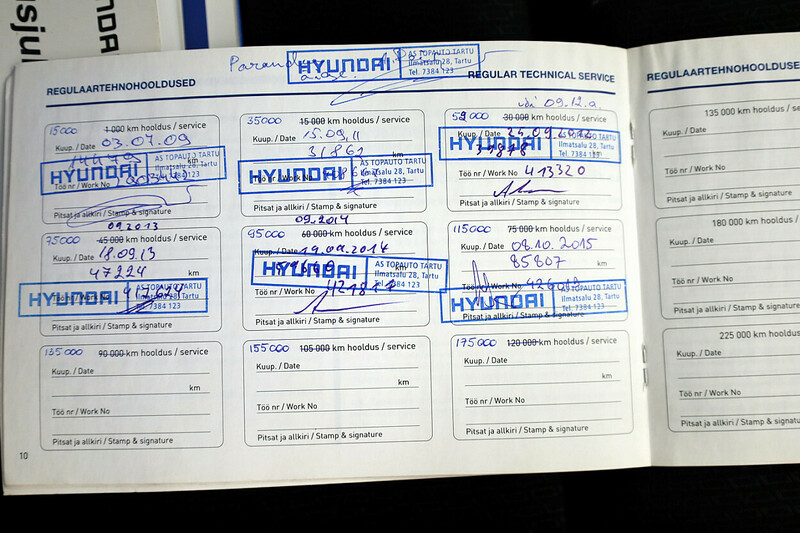 usjul
NDAI
HYUNDAI
AS TOPAUTO TARTU
Ilmatsalu 28, Tartu
Tel. 7384 123
REGULAARTEHNOHOOLDUSED
REGULAR TECHNICAL SERVICE
09.12.a.
15000 1 000 km hooldus / service
Kuup. / Date 03.07.09
km
HYUNDAI
AS TOPAUTO TARTU
Ilmatsalu 28, Tartu
Tel. 7384 123
Töö nr / Work No
Pitsat ja allkiri / Stamp & signature
35000 15 000 km hooldus / service
Kuup. / Date 15.09.11
31861 km
HYUNDAI
AS TOPAUTO TARTU
Ilmatsalu 28, Tartu
Tel. 7384 123
Töö nr / Work No
Pitsat ja allkiri / Stamp & signature
30 000 km hooldus / service
Kuup. / Date 24.09.2012
HYUNDAI
AS TOPAUTO TARTU
Ilmatsalu 28, Tartu
Tel. 7384 123
Töö nr / Work No 413320
Pitsat ja allkiri / Stamp & signature
09.2013
75000 45 000 km hooldus / service
Kuup. / Date 18.09.13
47224 km
HYUNDAI
AS TOPAUTO TARTU
Ilmatsalu 28, Tartu
Tel. 7384 123
Töö nr / Work No
Pitsat ja allkiri / Stamp & signature
09.2014
95000 60 000 km hooldus / service
Kuup. / Date 19.09.2014
km
HYUNDAI
AS TOPAUTO TARTU
Ilmatsalu 28, Tartu
Tel. 7384 123
Töö nr / Work No
Pitsat ja allkiri / Stamp & signature
115000 75 000 km hooldus / service
Kuup. / Date 08.10.2015
85807 km
HYUNDAI
AS TOPAUTO TARTU
Ilmatsalu 28, Tartu
Tel. 7384 123
Töö nr / Work No
Pitsat ja allkiri / Stamp & signature
135000 90 000 km hooldus / service
Kuup. / Date
km
Töö nr / Work No
Pitsat ja allkiri / Stamp & signature
155000 105 000 km hooldus / service
Kuup. / Date
km
Töö nr / Work No
Pitsat ja allkiri / Stamp & signature
175000 120 000 km hooldus / service
Kuup. / Date
km
Töö nr / Work No
Pitsat ja allkiri / Stamp & signature
10
REGULAARTEHNOHOOLDUSED
135 000 km hooldus
Kuup. / Date
Töö nr / Work No
Pitsat ja allkiri / Stamp &
180 000 km hooldus
Kuup. / Date
Töö nr / Work No
Pitsat ja allkiri / Stamp &
225 000 km
Kuup. / Date
Töö nr / Work No
Pitsat ja allkiri / Stamp